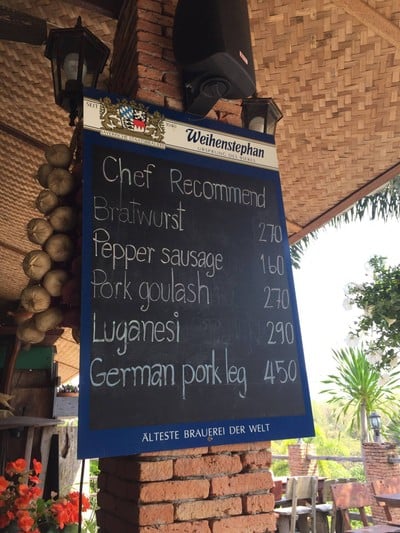 SEIT 1040
Weihenstephan
URSPRUNG DES BIERES
Chef Recommend
Bratwurst 270
Pepper sausage 160
Pork goulash 270
Luganesi 290
German pork leg 450
ÄLTESTE BRAUEREI DER WELT